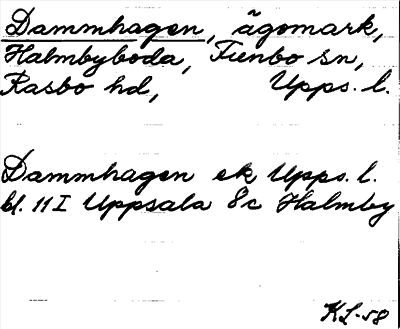 Dammhagen, ägomark,
Halmbyboda, Funbo sn,
Rasbo hd, Upps. l.
Dammhagen ek Upps. l.
bl. 11 I Uppsala 8c Halmby
KL-58